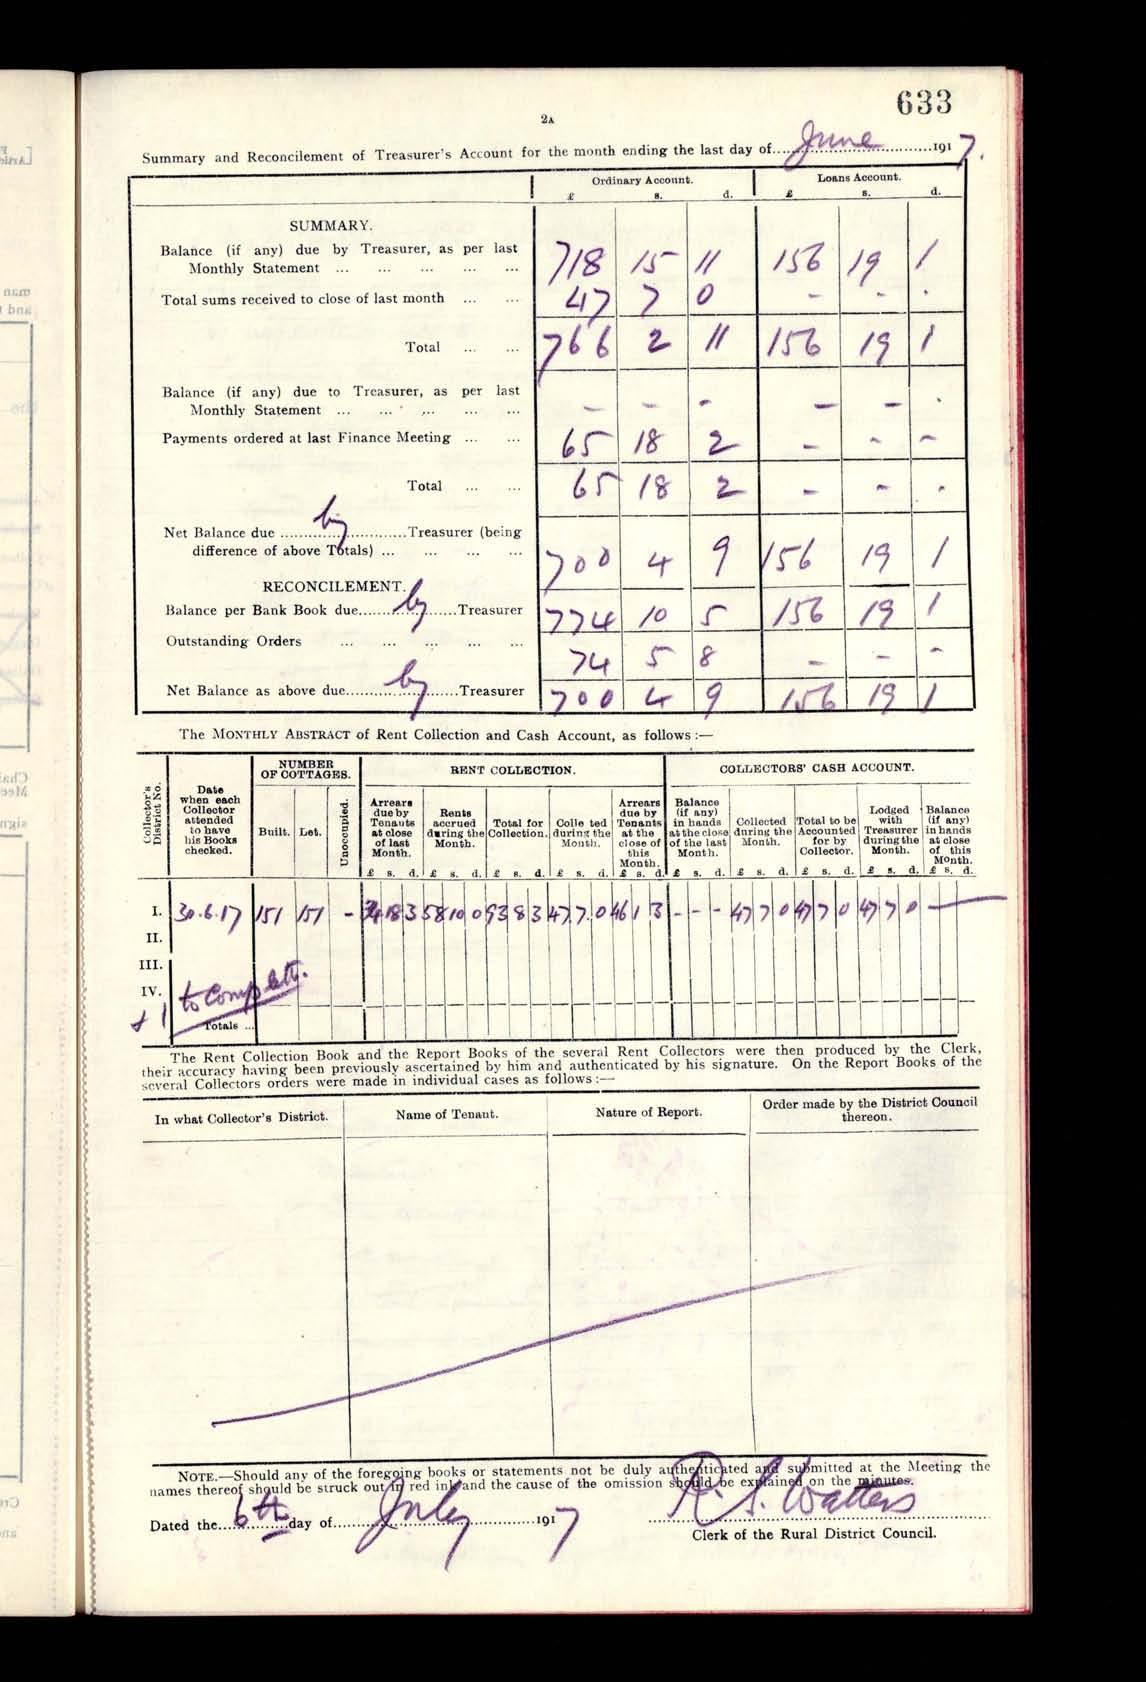 633
2A
Summary and Reconcilement of Treasurer's Account for the month ending the last day of....June............191 7.
Ordinary Account. Loans Account.
£ s. d. £ s. d.
SUMMARY.
Balance (if any) due by Treasurer, as per last
Monthly Statement ... ... ... ... ... 718 15 11 156 19 1
Total sums received to close of last month ... ... 47 7 0 - - .
Total ... ... 766 2 11 156 19 1
Balance (if any) due to Treasurer, as per last
Monthly Statement ... ... ... ... ... - - - - - .
Payments ordered at last Finance Meeting ... ... 65 18 2 - - -
Total ... ... 65 18 2 - - .
Net Balance due ......by......Treasurer (being
difference of above Totals) ... ... ... ... 700 4 9 156 19 1
RECONCILEMENT.
Balance per Bank Book due......by......Treasurer 774 10 5 156 19 1
Outstanding Orders ... ... ... ... ... 74 5 8 - - -
Net Balance as above due......by......Treasurer 700 4 9 156 19 1
The MONTHLY ABSTRACT of Rent Collection and Cash Account, as follows :—
Collector's District No.
Date when each Collector attended to have his Books checked.
NUMBER OF COTTAGES.
Built. Let. Unoccupied.
RENT COLLECTION.
Arrears due by Tenants at close of last Month.
Rents accrued during the Month.
Total for Collection.
Colle ted during the Month.
Arrears due by Tenants at the close of this Month.
COLLECTORS' CASH ACCOUNT.
Balance (if any) in hands at the close of the last Month.
Collected during the Month.
Total to be Accounted for by Collector.
Lodged with Treasurer during the Month.
Balance (if any) in hands at close of this Month.
£ s. d. £ s. d. £ s. d. £ s. d. £ s. d. £ s. d. £ s. d. £ s. d. £ s. d. £ s. d.
I. 30.6.17 151 151 - 34 18 3 58 10 0 93 8 3 47 7 0 46 1 3 - - - 47 7 0 47 7 0 47 7 0 —
II.
III.
IV.
Totals ...
The Rent Collection Book and the Report Books of the several Rent Collectors were then produced by the Clerk,
their accuracy having been previously ascertained by him and authenticated by his signature. On the Report Books of the
several Collectors orders were made in individual cases as follows :—
In what Collector's District. Name of Tenant. Nature of Report. Order made by the District Council thereon.
NOTE.—Should any of the foregoing books or statements not be duly authenticated and submitted at the Meeting the
names thereof should be struck out in red ink and the cause of the omission should be explained on the minutes.
Dated the...6th...day of......July......191 7 R. S. Watters
Clerk of the Rural District Council.